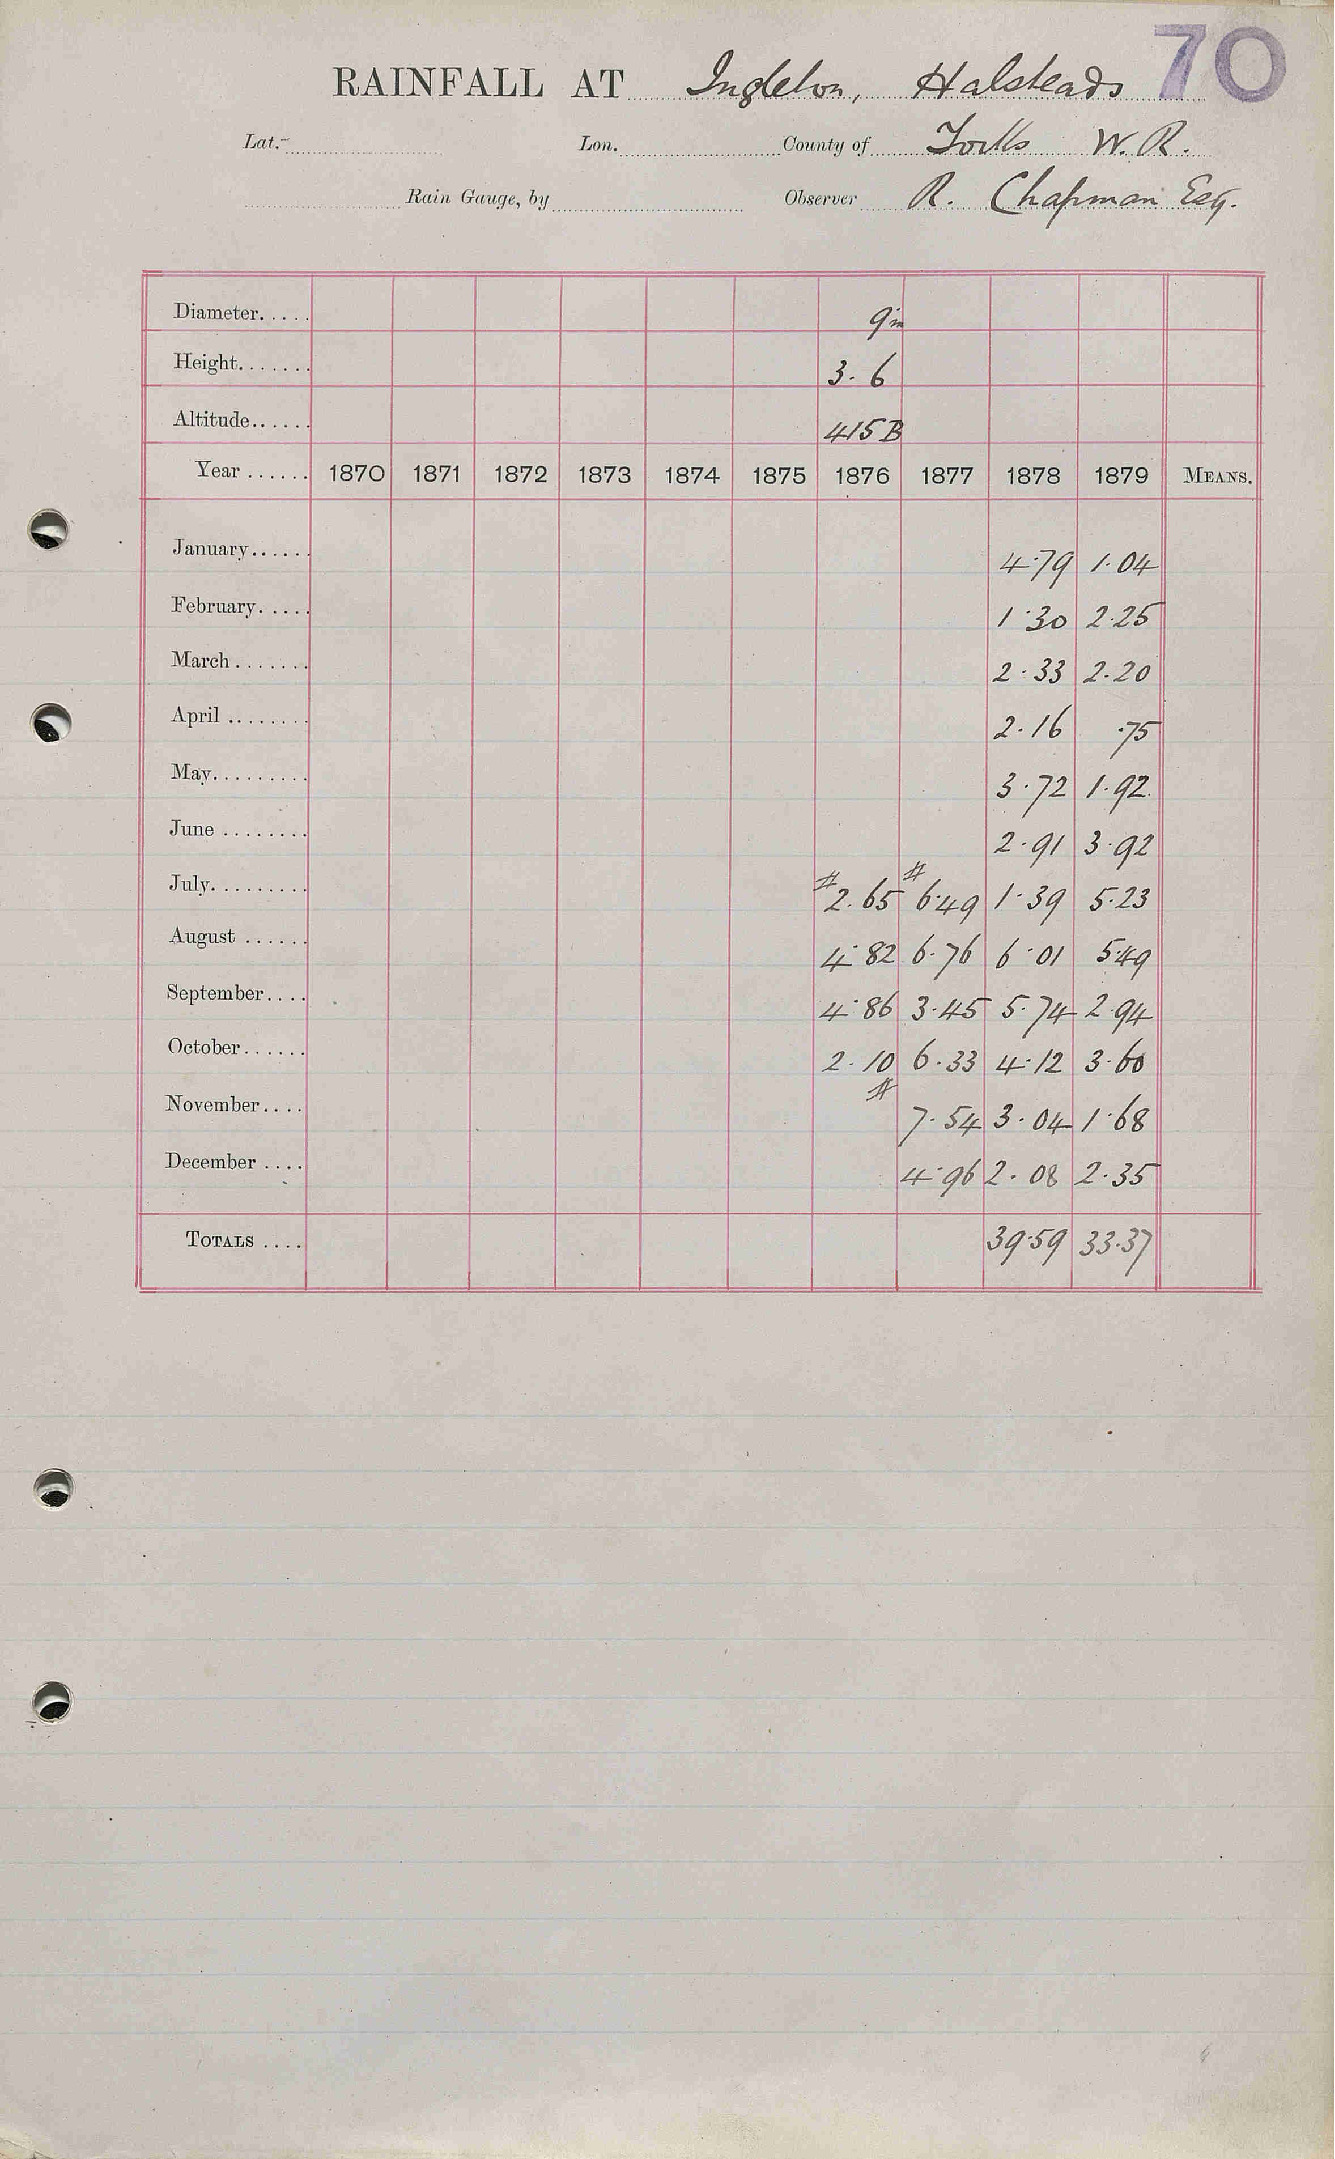 70
RAINFALL AT Ingleton, Halsteads
Lat. Lon. County of Yorks W. R.
Rain Gauge, by Observer R. Chapman Esq.
Diameter..... 9 in
Height....... 3. 6
Altitude...... 415 B
Year ...... 1870 1871 1872 1873 1874 1875 1876 1877 1878 1879 MEANS.
January...... 4.79 1.04
February..... 1.30 2.25
March ....... 2.33 2.20
April ........ 2.16 .75
May......... 3.72 1.92
June ........ 2.91 3.92
July......... #2.65 #6.49 1.39 5.23
August ...... 4.82 6.76 6.01 5.49
September.... 4.86 3.45 5.74 2.94
October...... 2.10 6.33 4.12 3.60
November.... # 7.54 3.04 1.68
December .... 4.96 2.08 2.35
TOTALS .... 39.59 33.37